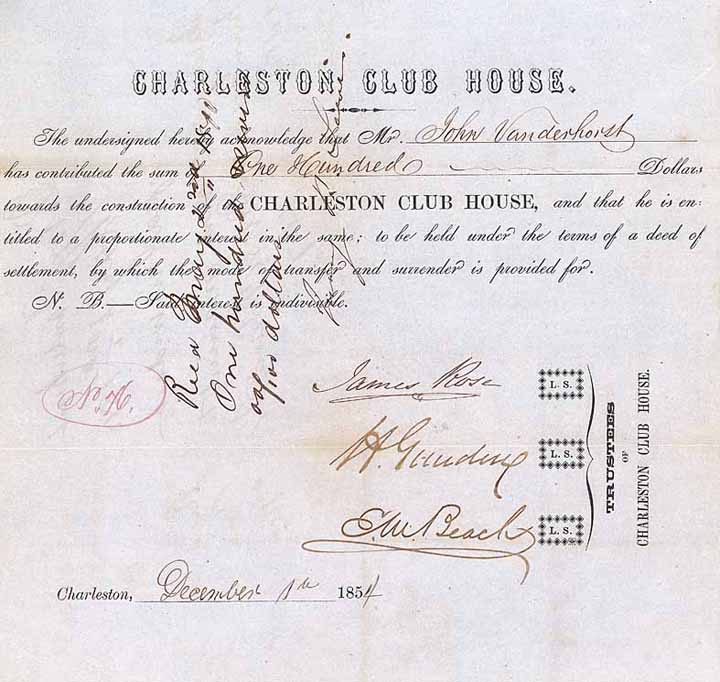 CHARLESTON CLUB HOUSE.
The undersigned hereby acknowledge that Mr. John Vanderhorst
has contributed the sum of One Hundred Dollars
towards the construction of the CHARLESTON CLUB HOUSE, and that he is en-
titled to a proportionate interest in the same; to be held under the terms of a deed of
settlement, by which the mode of transfer and surrender is provided for.
N. B.—Said interest is indivisible.
Recd
One hundred
00/100 dollars
James Rose L. S.
H. Gourdin L. S.
E. M. Beach L. S.
TRUSTEES
OF
CHARLESTON CLUB HOUSE.
Charleston, December 1st 1854